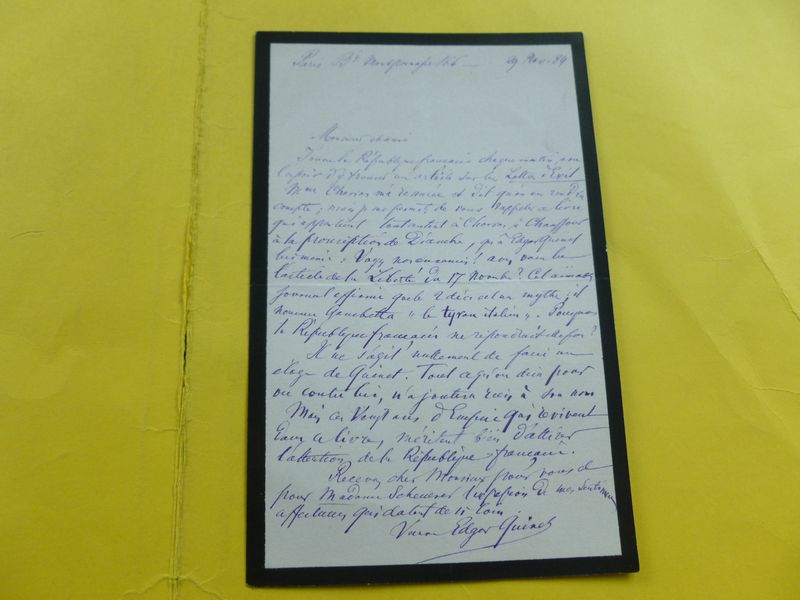 Paris Bd Montparnasse 166 — 29 Nov. 84
Monsieur et ami
J'ouvre la République française chaque matin, avec
l'espoir d'y trouver un article sur les Lettres d'Exil
Mme Charras m'a et dit qu'on en rendra
compte ; mais je me permets de vous rappeler ce livre
qui appartient tout autant à Charras, à Chauffour
à la proscription de Décembre, qu'à Edgar Quinet
lui même : avez vous lu
l'article de la Liberté du 17 Novembre ? Cet
journal affirme que le 2 décembre est un mythe ; il
nomme Gambetta « le tyran italien ». Pourquoi
la République française ne répondrait elle pas ?
Il ne s'agit nullement de faire un
éloge de Quinet. Tout ce qu'on dira pour
ou contre lui, n'ajoutera rien à son nom
Mais ces Vingt ans d'Empire qui revivent
dans ce livre, méritent bien d'attirer
l'attention de la République française.
Recevez cher Monsieur pour vous et
pour Madame Scheurer l'expression de mes sentiments
affectueux qui datent de si loin
Veuve Edgar Quinet